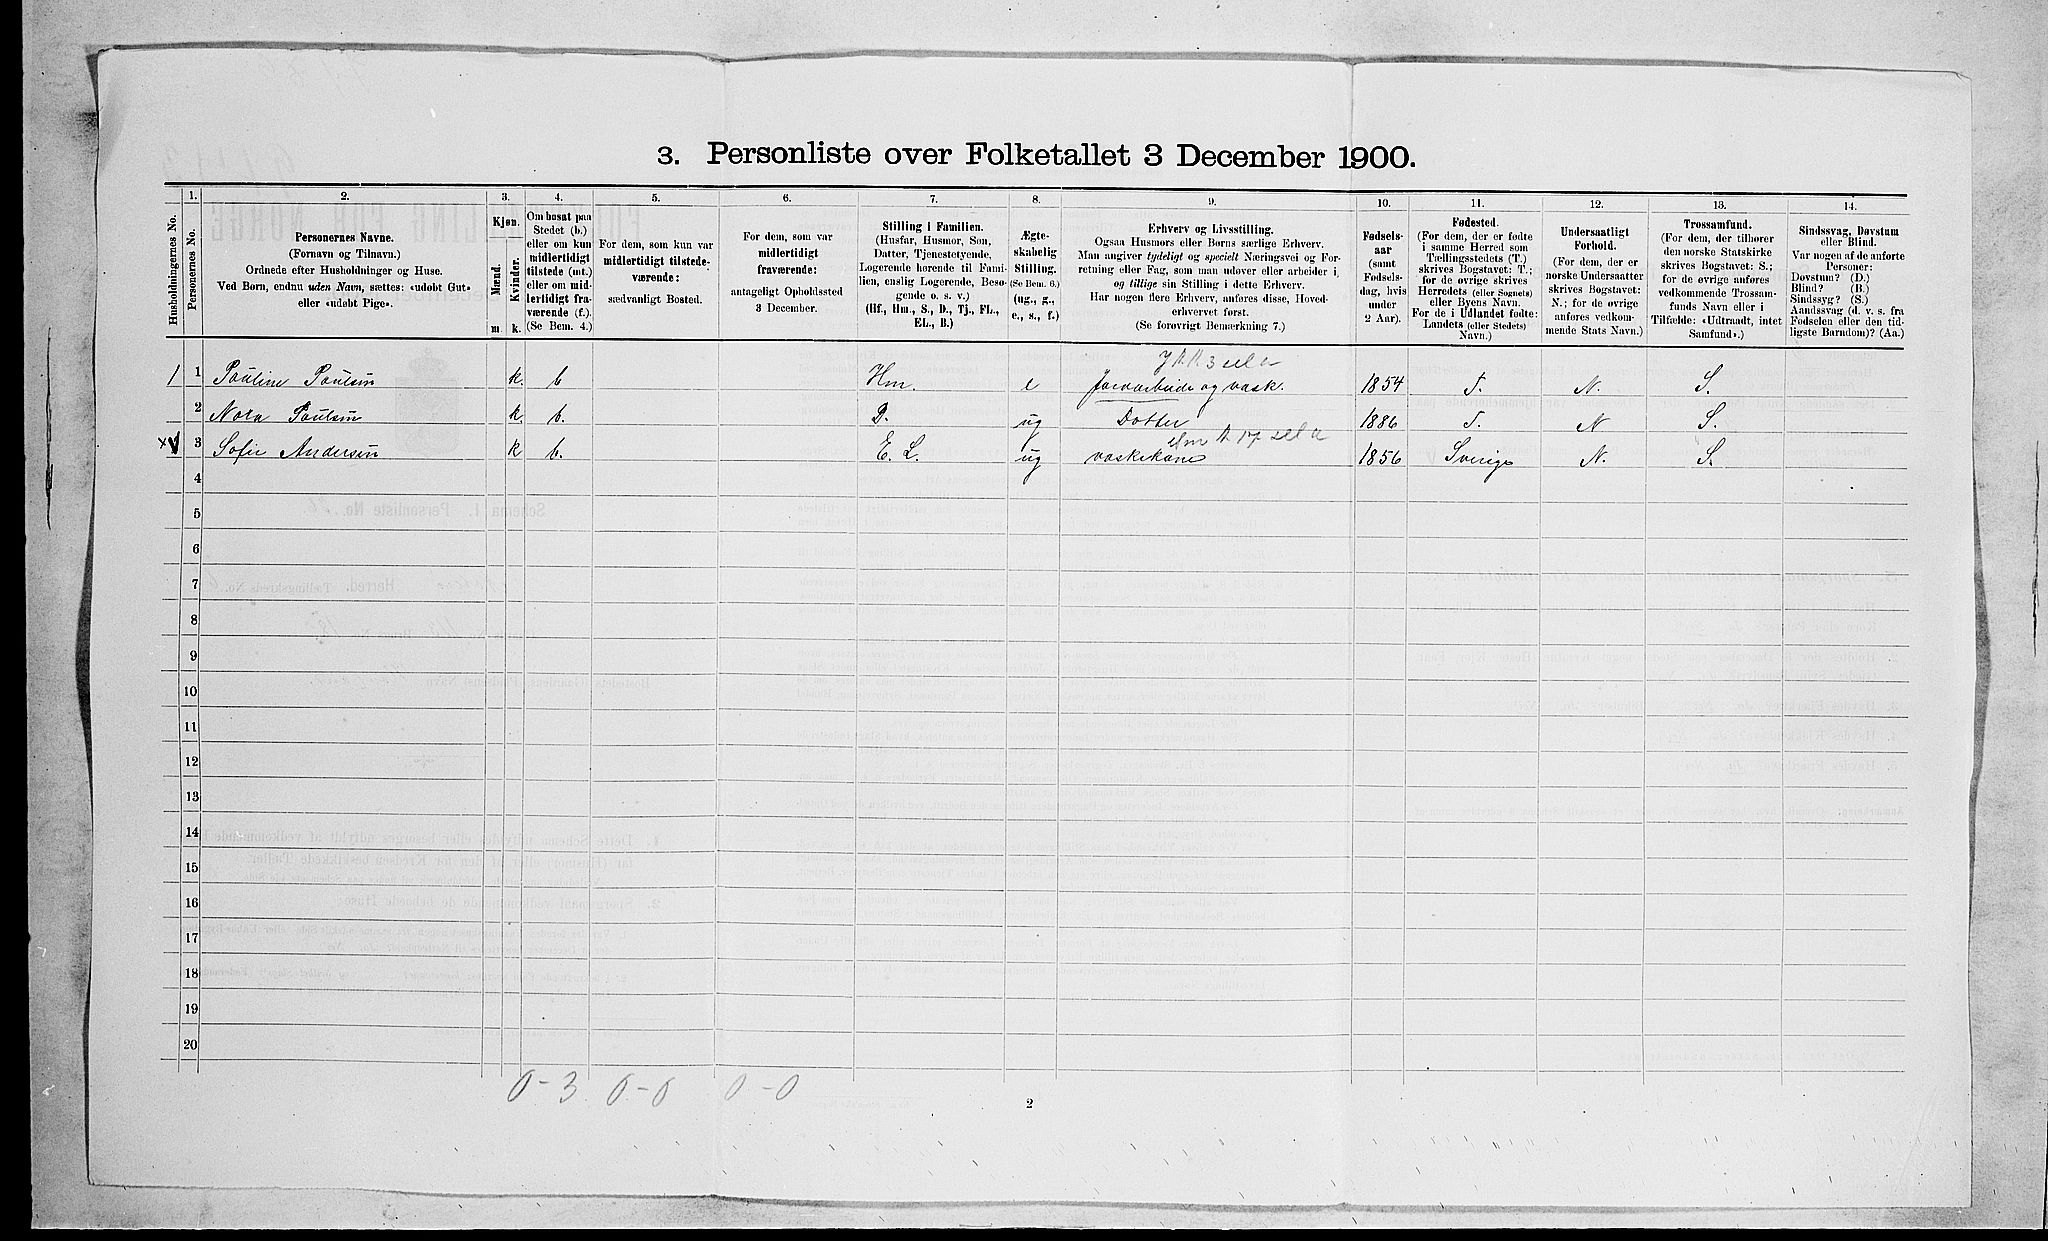 3. Personliste over Folketallet 3 December 1900.
1. 2. 3. 4. 5. 6. 7. 8. 9. 10. 11. 12. 13. 14.
Husholdningernes No.
Personernes No.
Personernes Navne.
(Fornavn og Tilnavn.)
Ordnede efter Husholdninger og Huse.
Ved Børn, endnu uden Navn, sættes: «udøbt Gut»
eller «udøbt Pige».
Kjøn.
Mænd.
Kvinder.
m. k.
Om bosat paa
Stedet (b.)
eller om kun
midlertidigt
tilstede (mt.)
eller om mid-
lertidigt fra-
værende (f.).
(Se Bem. 4.)
For dem, som kun var
midlertidigt tilstede-
værende:
sædvanligt Bosted.
For dem, som var
midlertidigt
fraværende:
antageligt Opholdssted
3 December.
Stilling i Familien.
(Husfar, Husmor, Søn,
Datter, Tjenestetyende,
Logerende hørende til Fami-
lien, enslig Logerende, Besø-
gende o. s. v.)
(Hf., Hm., S., D., Tj., FL.,
EL., B.)
Ægte-
skabelig
Stilling.
(Se Bem. 6.)
(ug., g.,
e., s., f.)
Erhverv og Livsstilling.
Ogsaa Husmors eller Børns særlige Erhverv.
Man angiver tydeligt og specielt Næringsvei og For-
retning eller Fag, som man udøver eller arbeider i,
og tillige sin Stilling i dette Erhverv.
Har nogen flere Erhverv, anføres disse, Hoved-
erhvervet først.
(Se forøvrigt Bemærkning 7.)
Fødsels-
aar
(samt
Fødsels-
dag, hvis
under
2 Aar).
Fødested.
(For dem, der er fødte
i samme Herred som
Tællingsstedets (T.)
skrives Bogstavet: T.;
for de øvrige skrives
Herredets (eller Sognets)
eller Byens Navn.
For de i Udlandet fødte:
Landets (eller Stedets)
Navn.)
Undersaatligt
Forhold.
(For dem, der er
norske Undersaatter
skrives Bogstavet:
N.; for de øvrige
anføres vedkom-
mende Stats Navn.)
Trossamfund.
(For dem, der tilhører
den norske Statskirke
skrives Bogstavet: S.;
for de øvrige anføres
vedkommende Trossam-
funds Navn eller i
Tilfælde: «Udtraadt, intet
Samfund».)
Sindssvag, Døvstum
eller Blind.
Var nogen af de anførte
Personer:
Døvstum? (D.)
Blind? (B.)
Sindssyg? (S.)
Aandssvag (d. v. s. fra
Fødselen eller den tid-
ligste Barndom)? (Aa.)
1 1 Pauline Paulsen k. b Hm. e og vask. 1854 T. N. S.
2 Nora Paulsen k. b. D. ug Datter 1886 T. N S.
3 Sofie Andersen k b. E. L. ug vaskekone 1856 Sverige N. S.
4
5
6
7
8
9
10
11
12
13
14
15
16
17
18
19
20
0-3 0-0 0-0
2